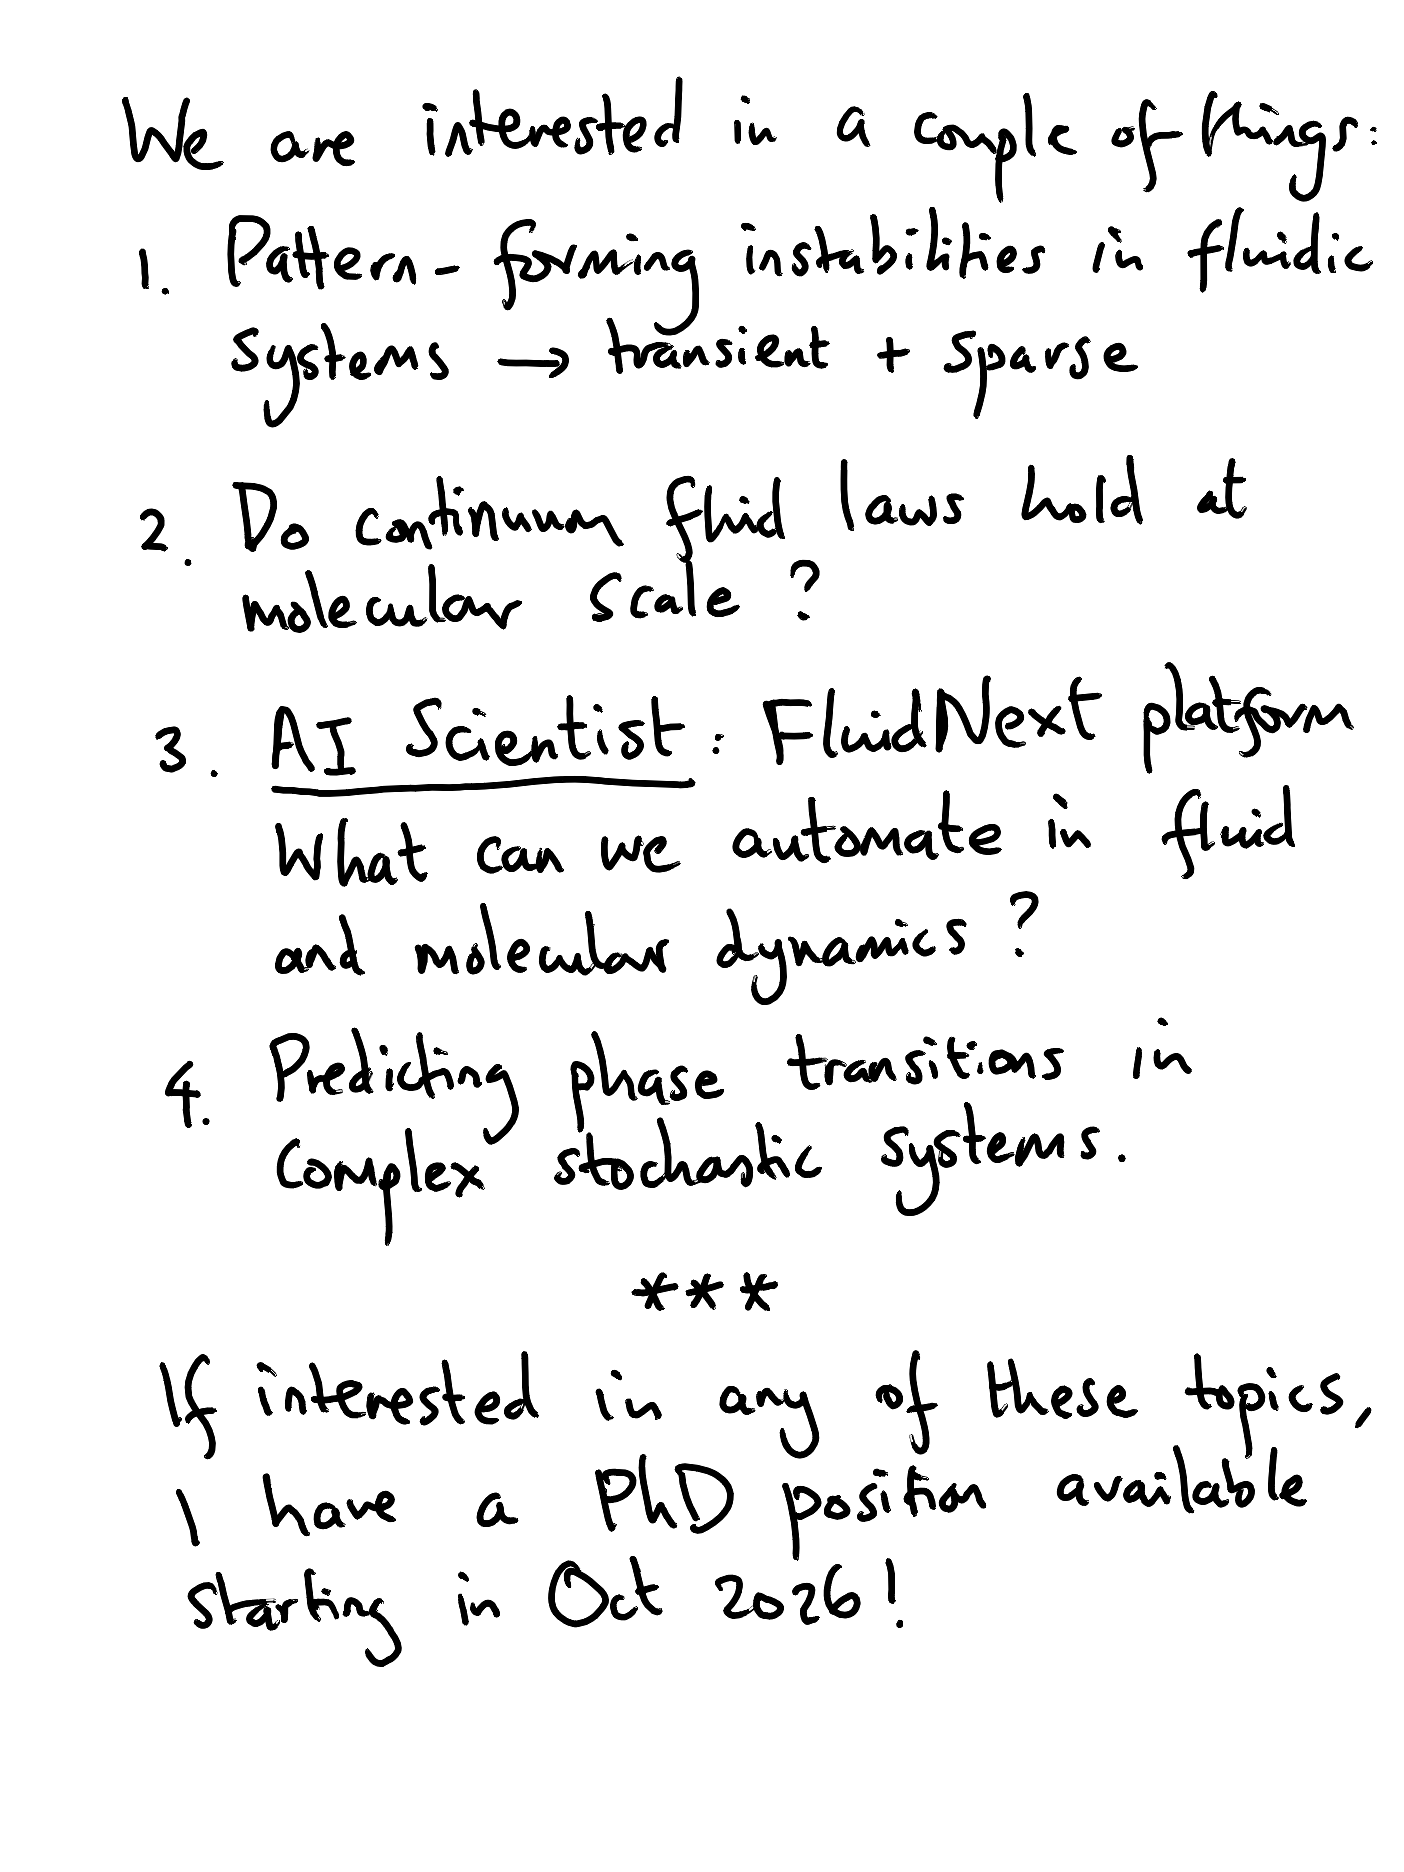 We are interested in a couple of things:
1. Pattern-forming instabilities in fluidic
systems → transient + sparse
2. Do continuum fluid laws hold at
molecular scale?
3. AI Scientist: FluidNext platform
What can we automate in fluid
and molecular dynamics?
4. Predicting phase transitions in
complex stochastic systems.
***
If interested in any of these topics,
I have a PhD position available
starting in Oct 2026!